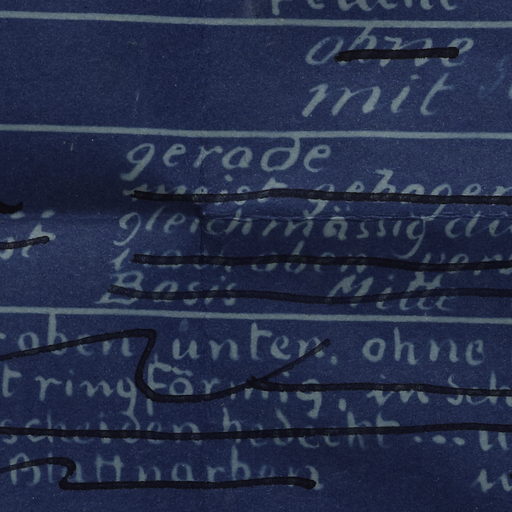 ohne
mit
gerade
meist gebogen
gleichmässig
nach oben
Basis Mitte
oben, unten. ohne
ringförmig, in
scheiden bedeckt ...
Blattnarben